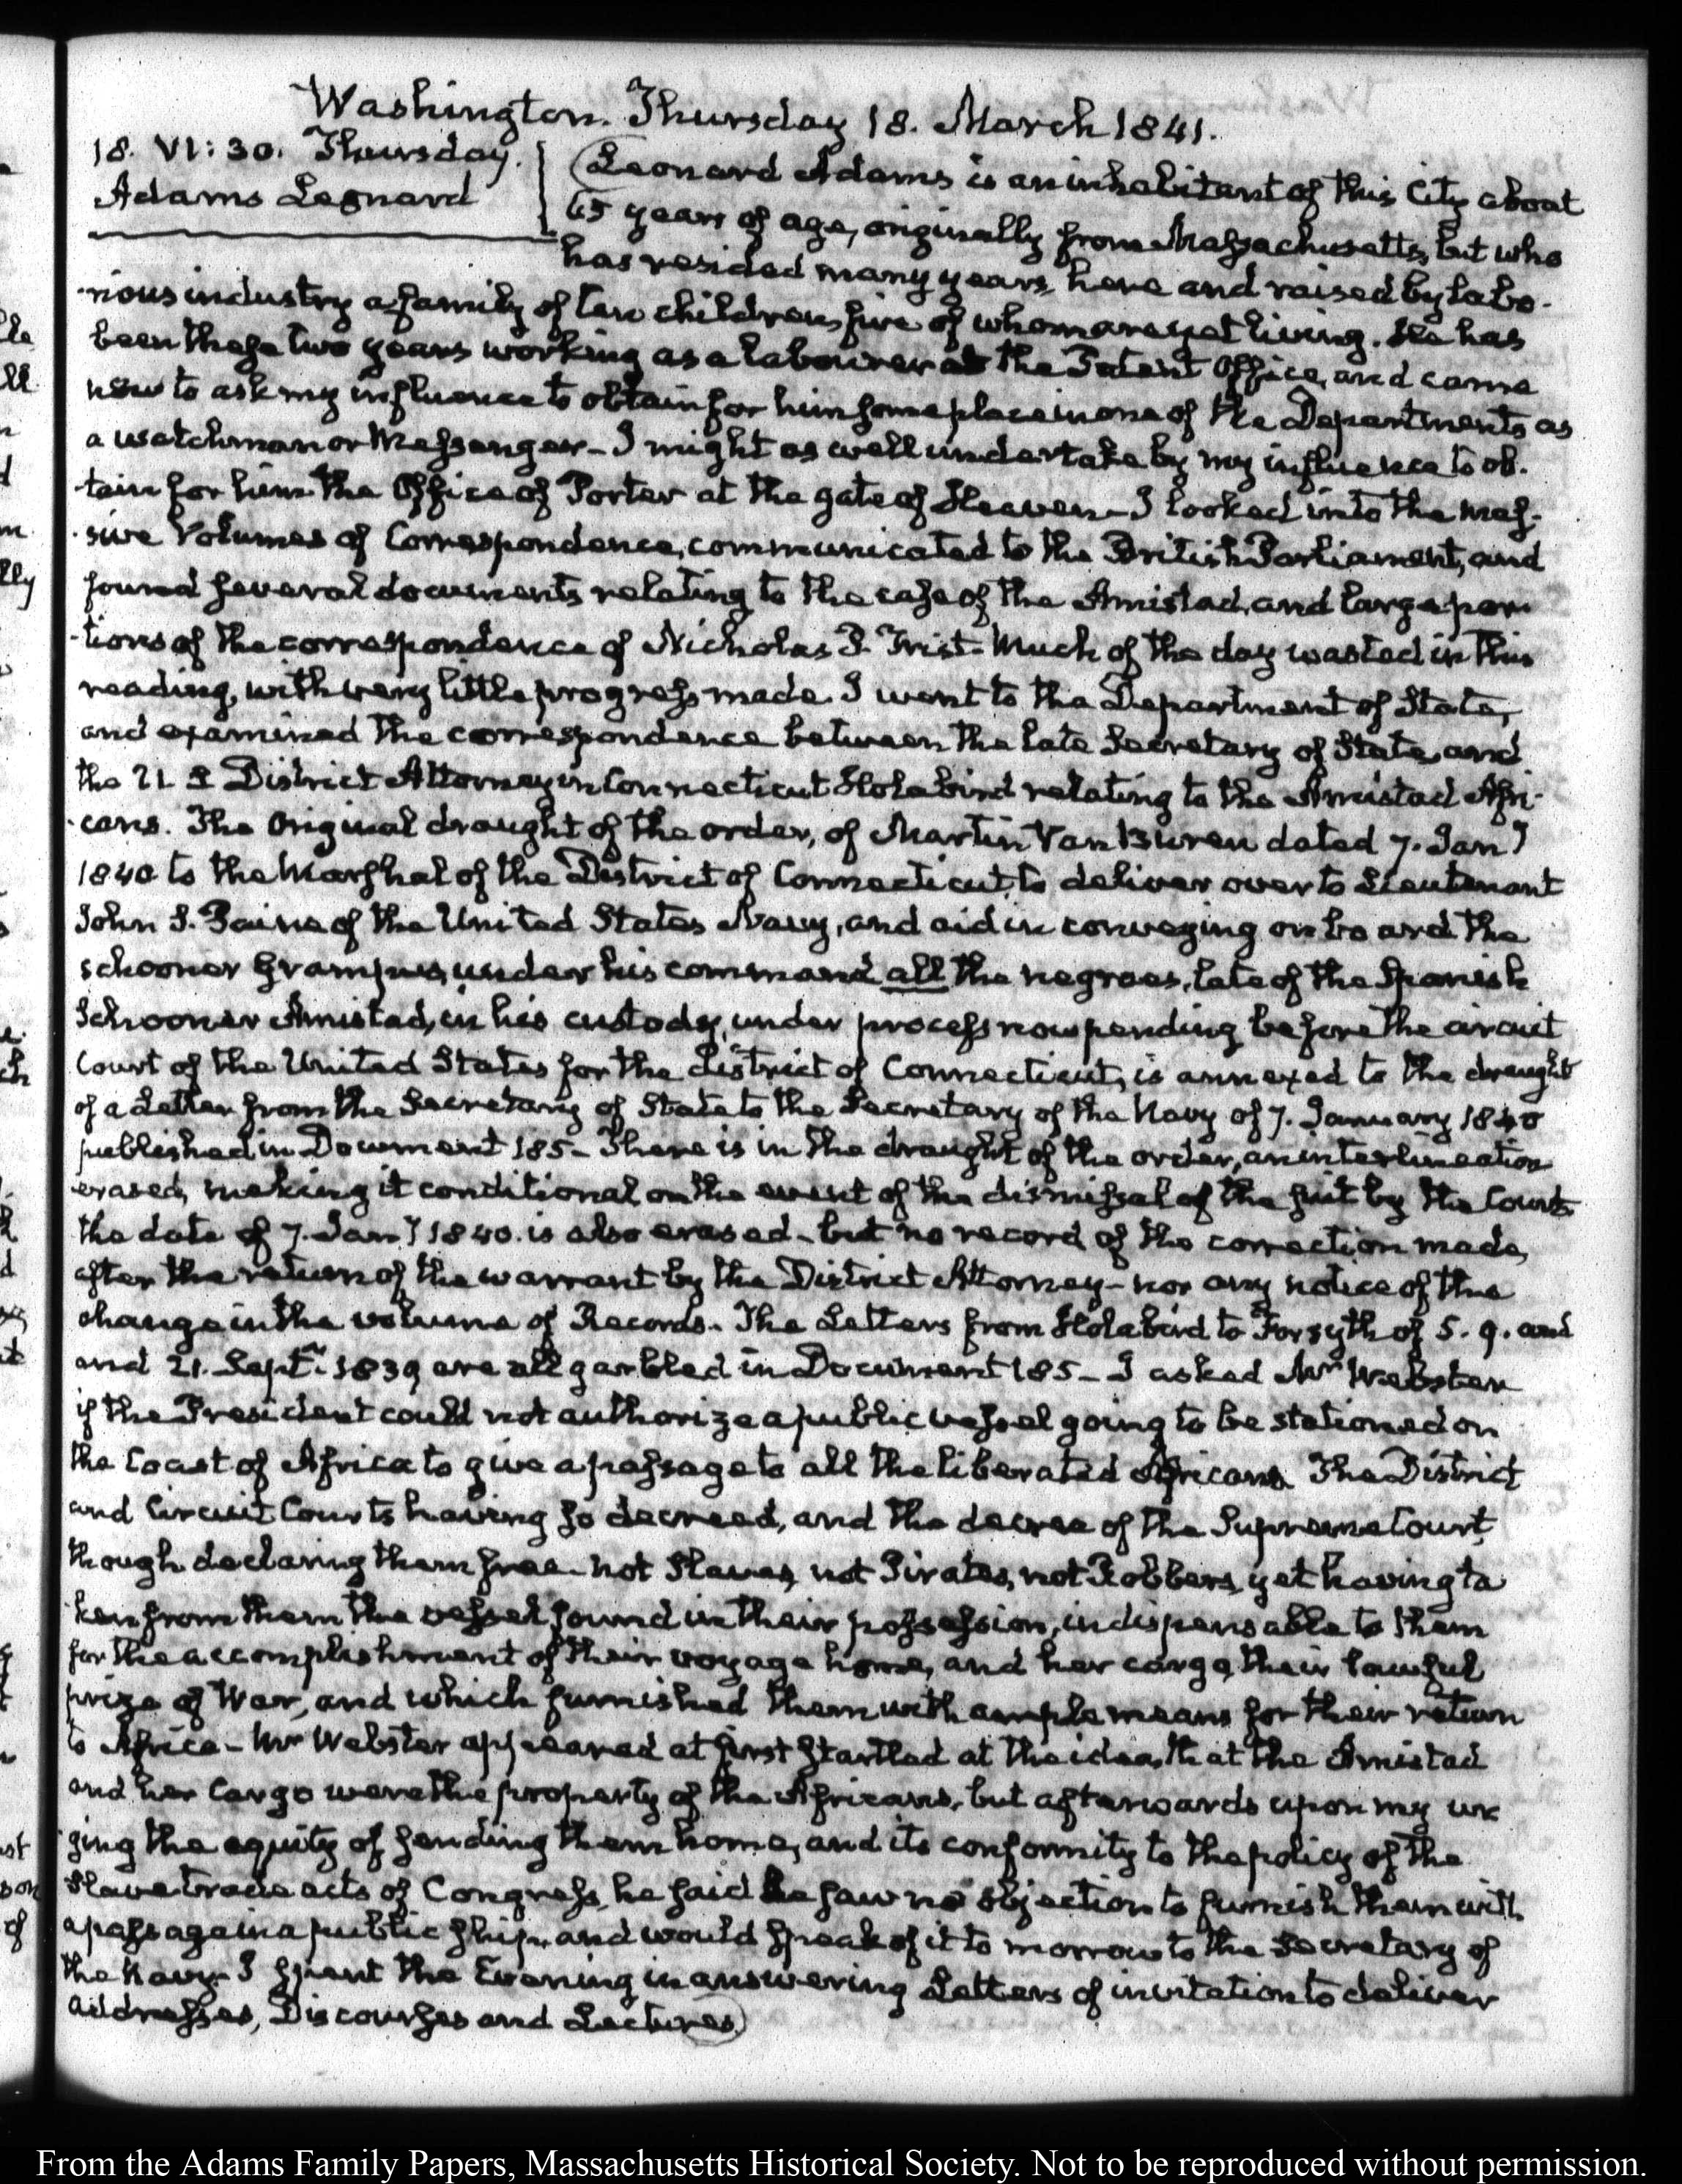 Washington. Thursday 18. March 1841.
18. VI: 30. Thursday.
Adams Leonard
Leonard Adams is an inhabitant of this City about
65 years of age, originally from Massachusetts, but who
has resided many years, here and raised by labo-
-rious industry a family of ten children, five of whom are yet living. He has
been these two years working as a labourer at the Patent Office, and came
now to ask my influence to obtain for him some place in one of the Departments as
a watchman or Messenger - I might as well undertake by my influence to ob-
-tain for him the Office of Porter at the gate of Heaven - I looked into the mas-
-sive Volumes of Correspondence, communicated to the British Parliament, and
found several documents relating to the case of the Amistad, and large por-
-tions of the correspondence of Nicholas P. Trist. Much of the day wasted in this
reading, with very little progress made. I went to the Department of State,
and examined the correspondence between the late Secretary of State, and
the U S District Attorney in Connecticut Holabird relating to the Amistad Afri-
-cans. The Original draught of the order, of Martin Van Buren dated 7. Jany
1840 to the Marshal of the District of Connecticut, to deliver over to Lieutenant
John S. Paine of the United States Navy, and aid in conveying on board the
schooner Grampus, under his command all the negroes, late of the Spanish
Schooner Amistad, in his custody, under process now pending before the circuit
Court of the United States for the district of Connecticut, is annexed to the draught
of a Letter from the Secretary of State to the Secretary of the Navy of 7. January 1840
published in Document 185 - There is in the draught of the order, an interlineation
erased, making it conditional on the event of the dismissal of the suit by the Court
the date of 7. Jany 1840. is also erased - but no record of the correction made,
after the return of the warrant by the District Attorney - nor any notice of the
change in the volume of Records. The Letters from Holabird to Forsyth of 5. 9. and
and 21. Septr 1839 are all garbled in Document 185 - I asked Mr Webster
if the President could not authorize a public vessel going to be stationed on
the Coast of Africa to give a passage to all the liberated Africans. The District
and Circuit Courts having so decreed, and the decree of the Supreme Court,
though declaring them free - not Slaves, not Pirates, not Robbers, yet having ta
ken from them the vessel found in their possession, indispensable to them
for the accomplishment of their voyage home, and her cargo, their lawful
prize of War, and which furnished them with ample means for their return
to Africa - Mr Webster appeared at first startled at the idea, that the Amistad
and her Cargo were the property of the Africans, but afterwards upon my ur
ging the equity of sending them home, and its conformity to the policy of the
Slave trade acts of Congress, he said he saw no objection to furnish them with
a passage in a public ship, and would speak of it to morrow to the Secretary of
the Navy - I spent the Evening in answering Letters of invitation to deliver
addresses, Discourses and Lectures
From the Adams Family Papers, Massachusetts Historical Society. Not to be reproduced without permission.